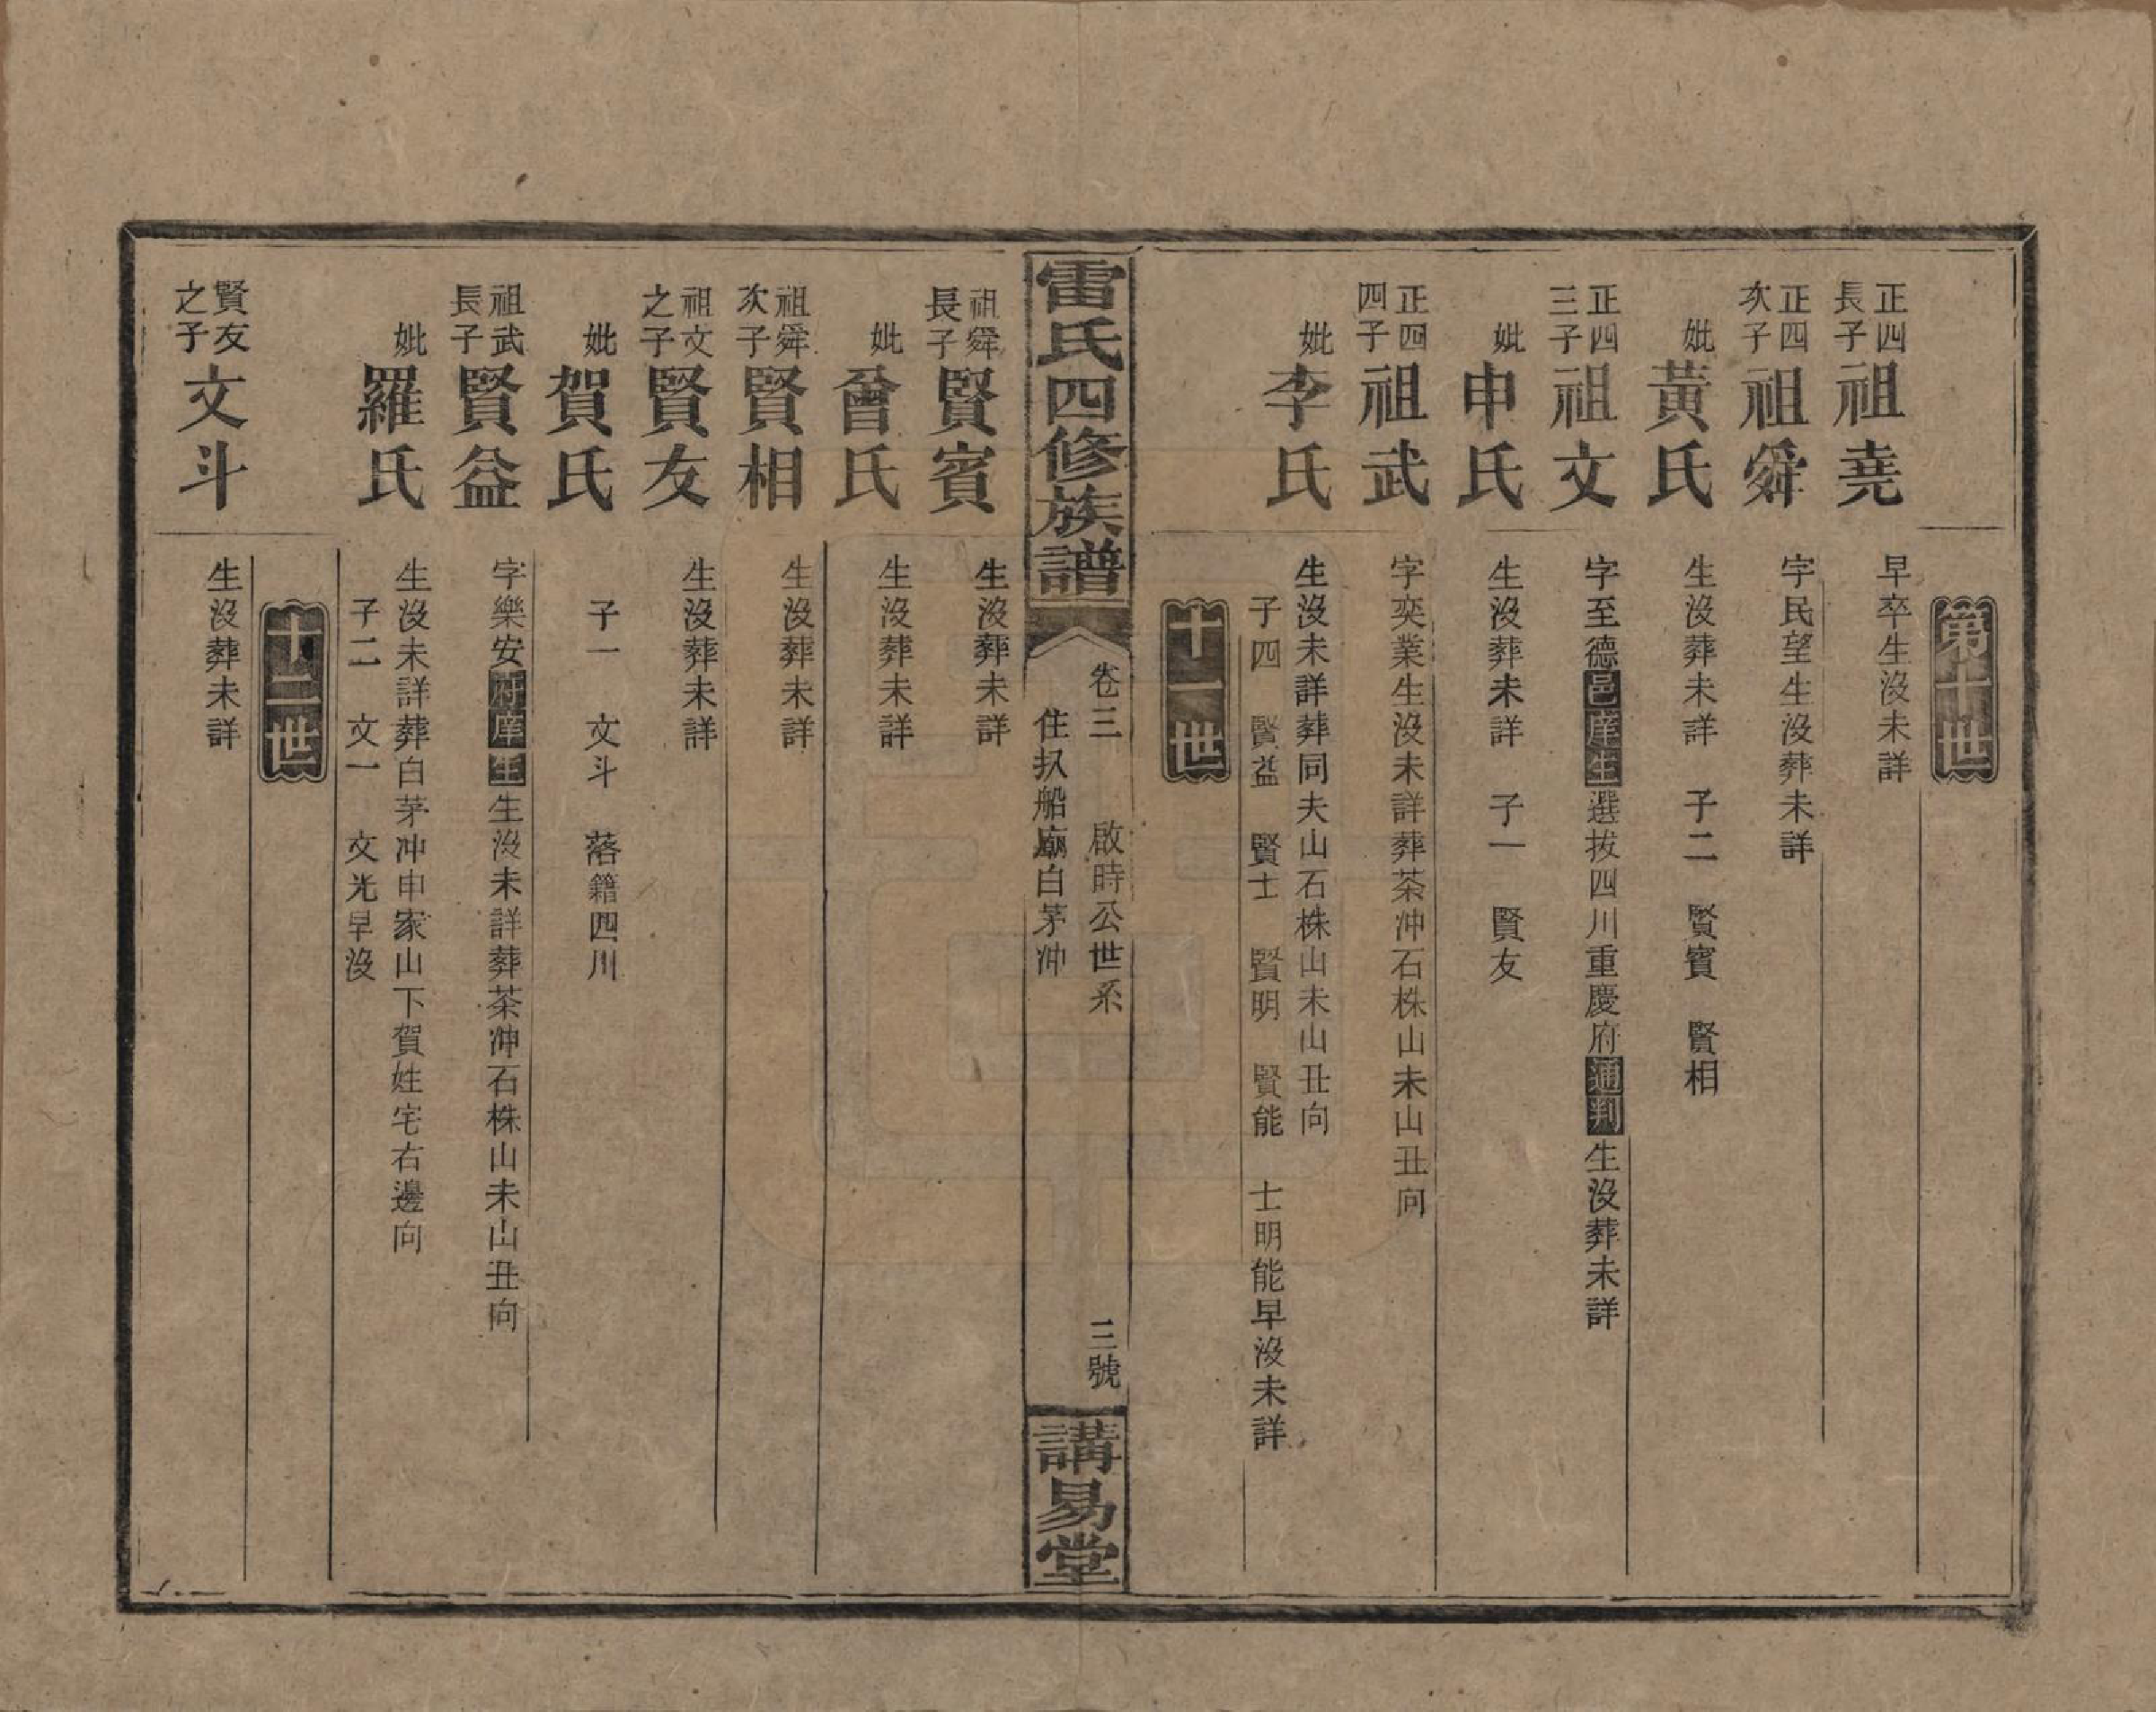 第十世
正四長子 祖堯
早卒生沒未詳
正四次子 祖舜
字民望生沒葬未詳
妣 黃氏
生沒葬未詳 子二 賢賓 賢相
正四三子 祖文
字至德邑庠生選拔四川重慶府通判生沒葬未詳
妣 申氏
生沒葬未詳 子一 賢友
正四四子 祖武
字奕業生沒未詳葬茶冲石株山未山丑向
妣 李氏
生沒未詳葬同夫山石株山未山丑向
子四 賢益 賢士 賢明 賢能 士明能早沒未詳
十一世
雷氏四修族譜
卷三 啟時公世系 三號
住扖船廟白茅冲
講易堂
祖舜長子 賢賓
生沒葬未詳
妣 曾氏
生沒葬未詳
祖舜次子 賢相
生沒葬未詳
祖文之子 賢友
生沒葬未詳
妣 賀氏
子一 文斗 落籍四川
祖武長子 賢益
字樂安府庠生生沒未詳葬茶冲石株山未山丑向
妣 羅氏
生沒未詳葬白茅冲申家山下賀姓宅右邊向
子二 文一 文光早沒
十二世
賢友之子 文斗
生沒葬未詳